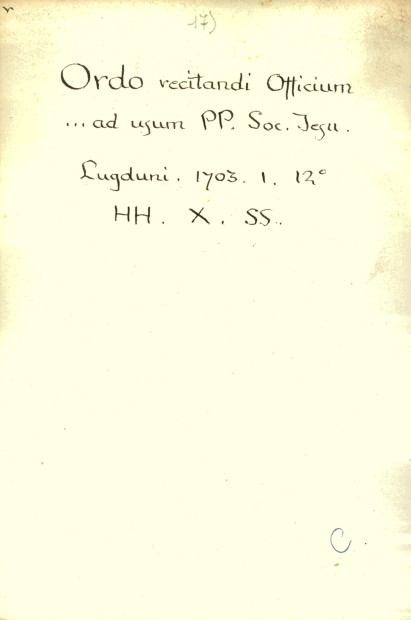 17)
Ordo recitandi Officium
... ad usum PP. Soc. Jesu.
Lugduni. 1703. 1. 12°
HH. X. SS.
C